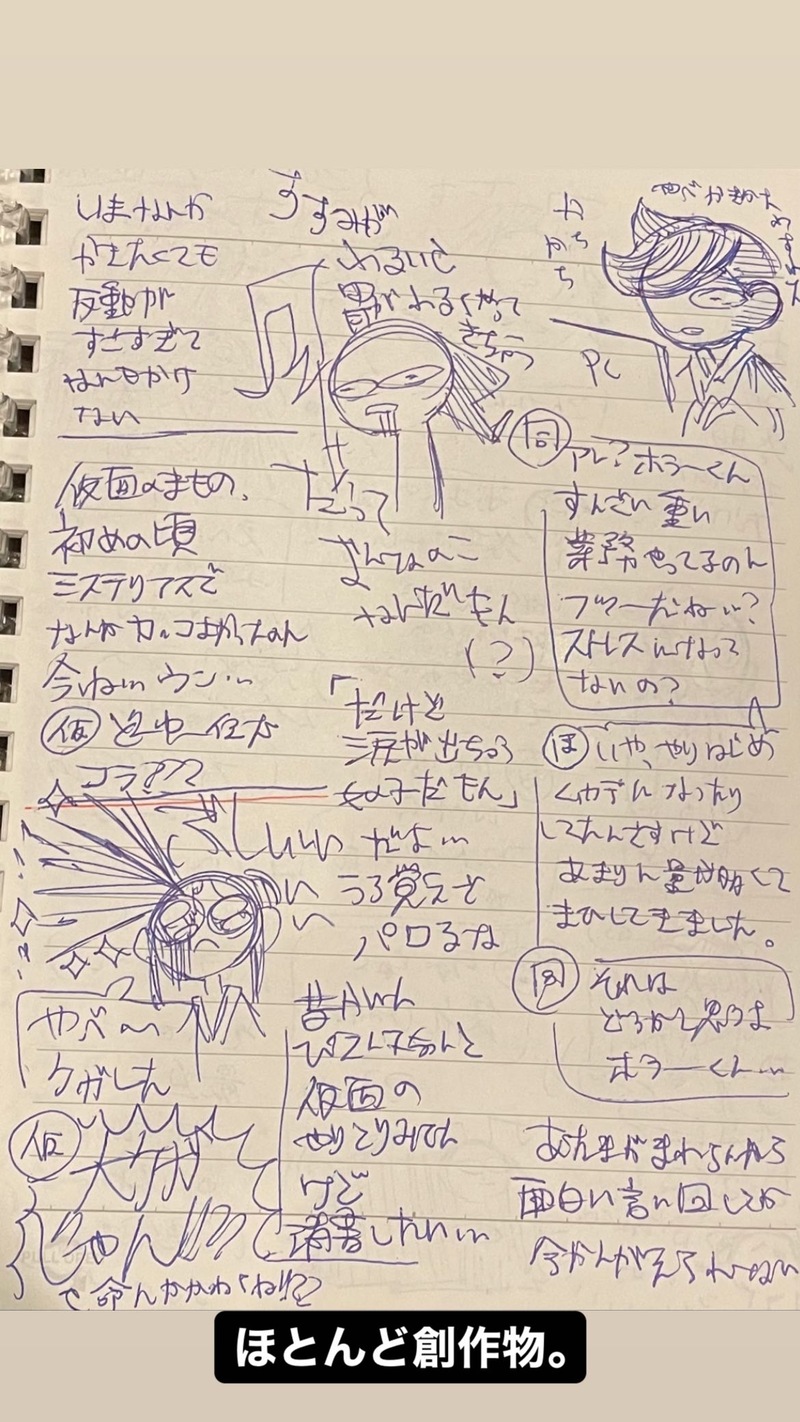 いまなんか
かきたくても
反動が
すごすぎて
なんもかけ
ない
すすみが
わるいと
胃がわるくなって
きちゃう
カ
カチ
チ
PC
仮面のまもの、
初めの頃
ミステリアスで
なんかカッコよかったのに
今ねぃウン…
仮
コラ???
だって
そんなのこ
なしだもん
(?)
「だけど
涙が出ちゃう
女の子だもん」
だよ…
うろ覚えで
パロるな
同
アレ?ホラーくん
すんごい重い
業務やってるのに
フツーだねぃ?
ストレスになって
ないの?
ほ
いや、やりはじめ
ムカデになったり
してたんですけど
あまりに量が多くて
まひしてきました。
それは
どうかと思うよ
ホラーくん…
やべ〜
ケガした
仮
大ケガ
じゃん!!??
て命にかかわるね!?
昔かいた
仮面の
やりとりみてた
けど
清書したい…
あたまがまわらんから
面白い言い回しとか
今かんがえられない
ほとんど創作物。